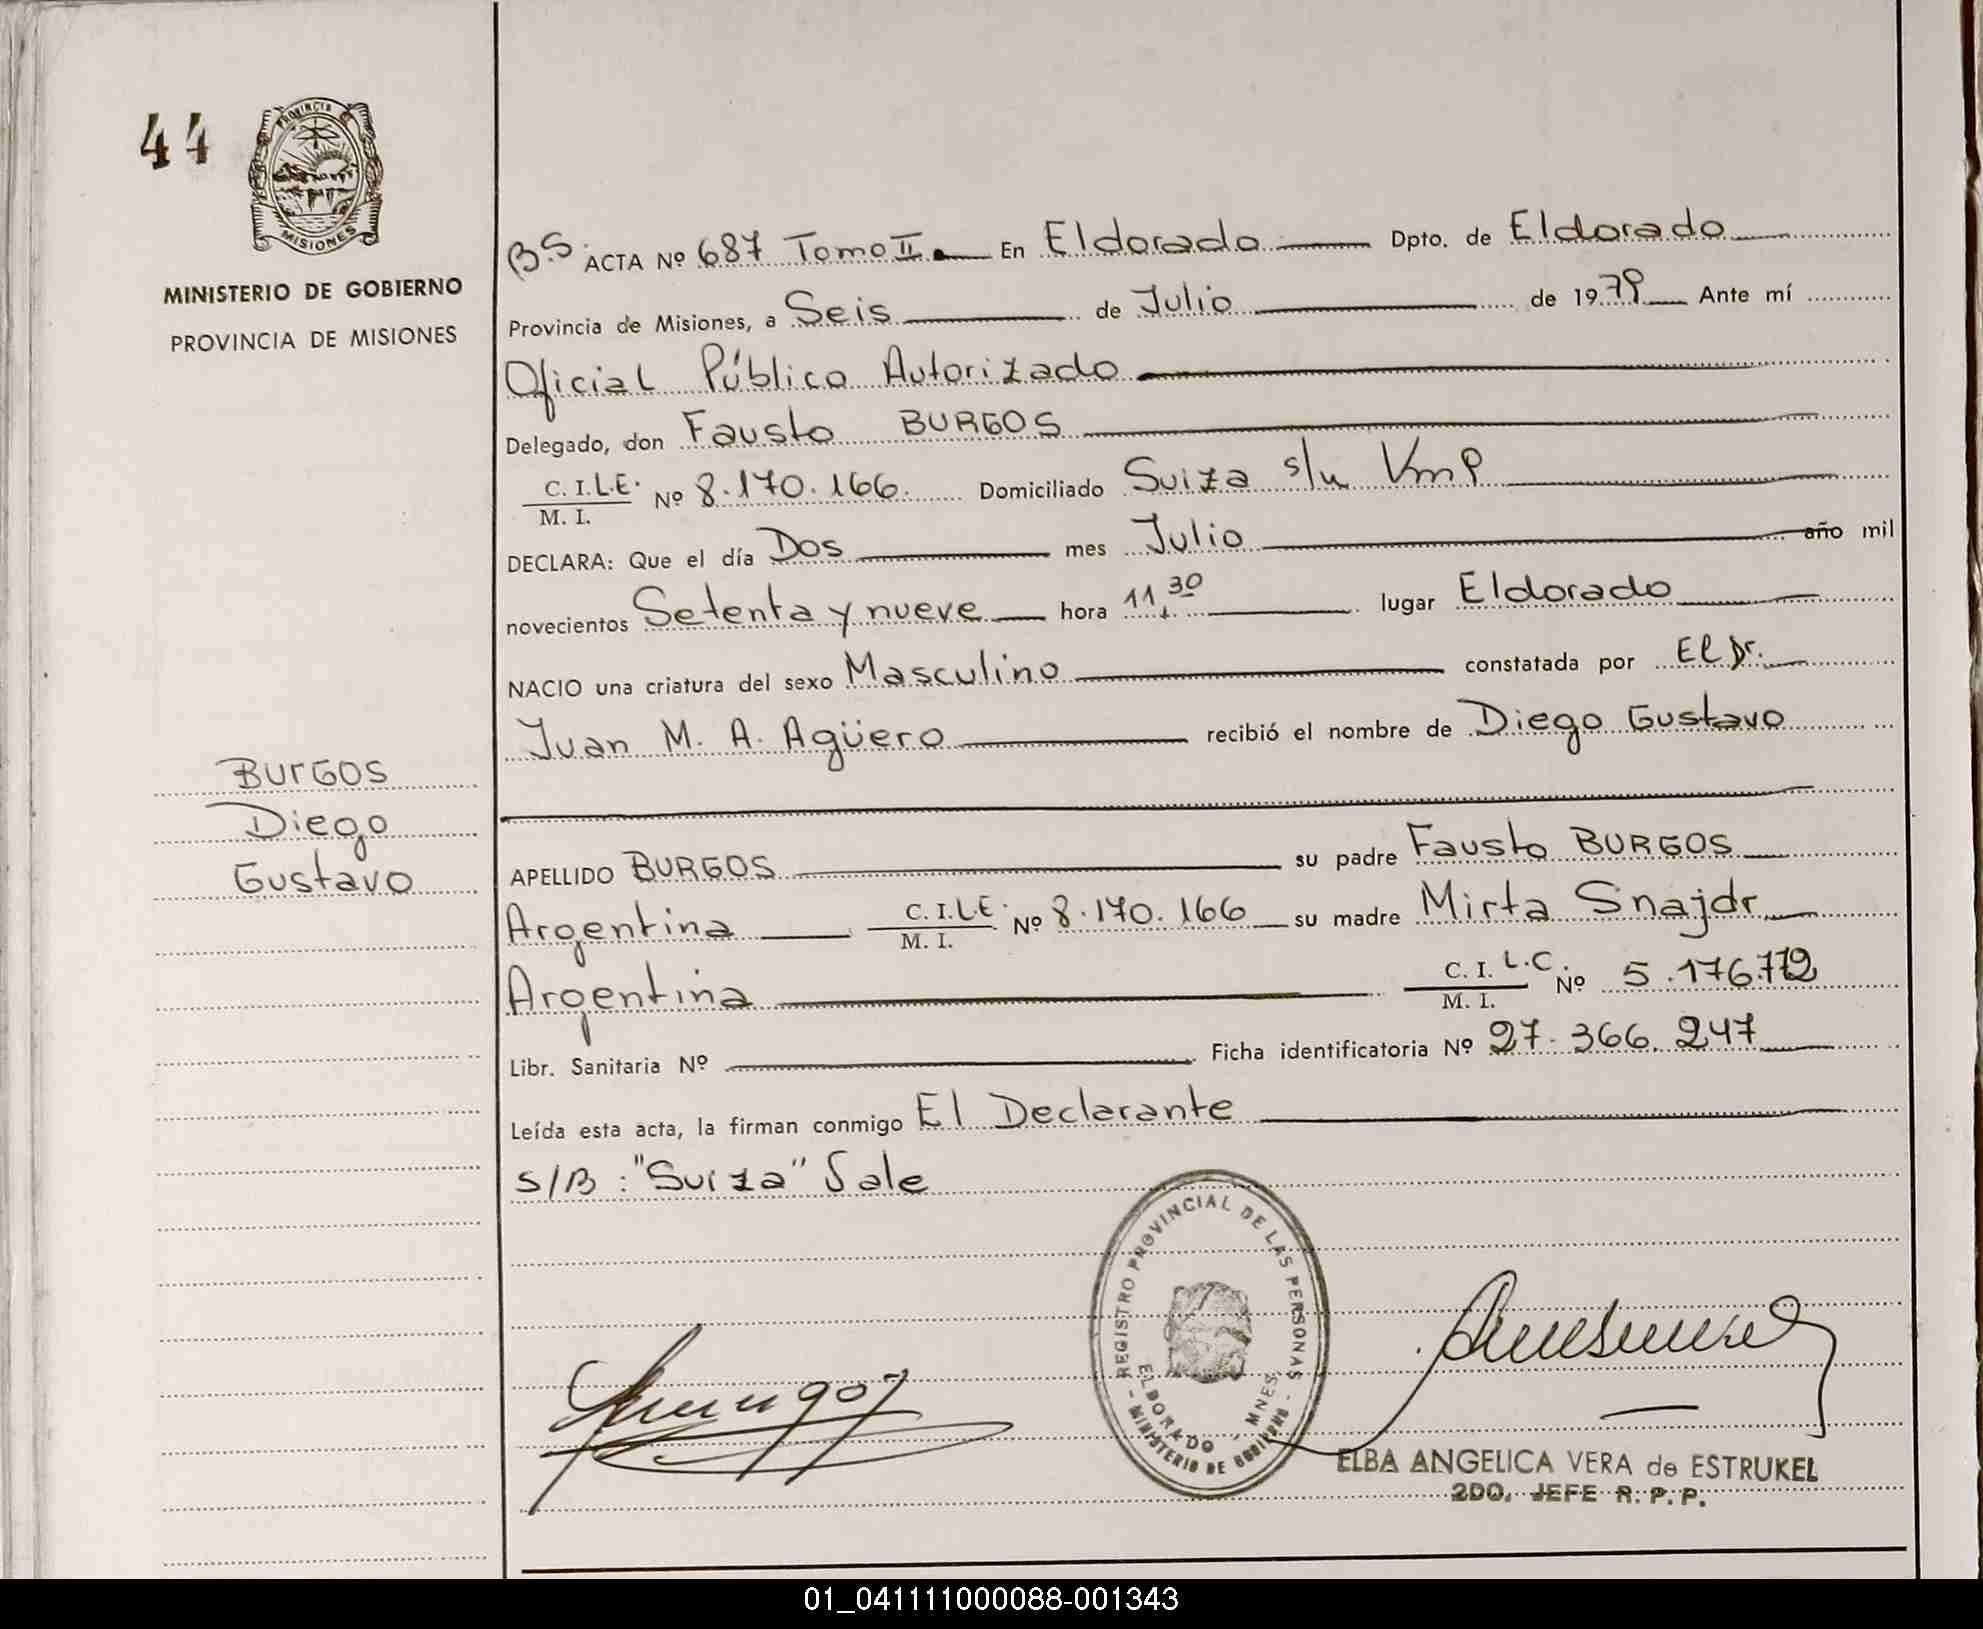 44
PROVINCIA DE
MISIONES
MINISTERIO DE GOBIERNO
PROVINCIA DE MISIONES
BURGOS
Diego
Gustavo
B.S ACTA Nº 687 Tomo II En Eldorado Dpto. de Eldorado
Provincia de Misiones, a Seis de Julio de 1979 Ante mí
Oficial Público Autorizado
Delegado, don Fausto BURGOS
C. I. L.E. Nº 8.170.166. Domiciliado Suiza s/n Km 9
M. I.
DECLARA: Que el día Dos mes Julio año mil
novecientos Setenta y nueve hora 11 30 lugar Eldorado
NACIO una criatura del sexo Masculino constatada por El Dr.
Juan M. A. Agüero recibió el nombre de Diego Gustavo
APELLIDO BURGOS su padre Fausto BURGOS
Argentina C. I. L.E. Nº 8.170.166 su madre Mirta Snajdr
M. I.
Argentina C. I. L.C. Nº 5.176.772
M. I.
Libr. Sanitaria Nº Ficha identificatoria Nº 27.366.247
Leída esta acta, la firman conmigo El Declarante
S/B: "Suiza" Sale
REGISTRO PROVINCIAL DE LAS PERSONAS
ELDORADO - MNES.
- MINISTERIO DE GOBIERNO -
ELBA ANGELICA VERA de ESTRUKEL
2DO. JEFE R. P. P.
01_041111000088-001343